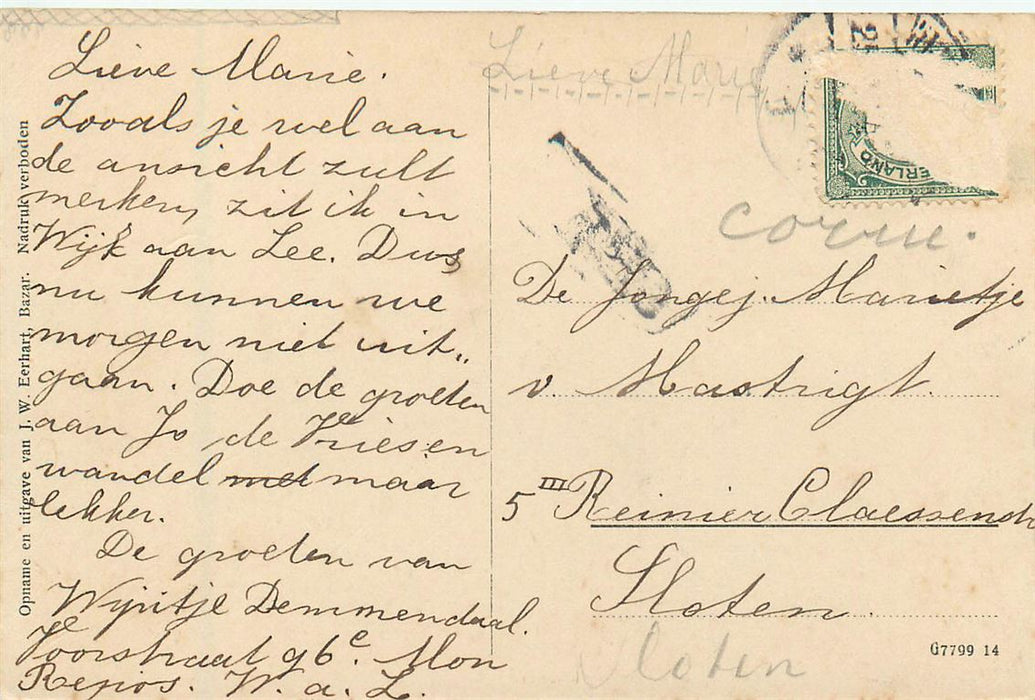 Lieve Marie.
Zooals je wel aan
de ansicht zult
merken, zit ik in
Wijk aan Zee. Dus
nu kunnen we
morgen niet uit„
gaan. Doe de groeten
aan Jo de Vries en
wandel met maar
lekker.
De groeten van
Wijntje Demmendaal.
Voorstraat 96e. Mon
Repos. W. a. Z.
Opname en uitgave van J. W. Eerhart, Bazar. Nadruk verboden
Lieve Marie
25
ERLAND
De Jongej. Marietje
v. Mastrigt.
5 III Reinier Claessenstr
Sloten.
Sloten
G7799 14